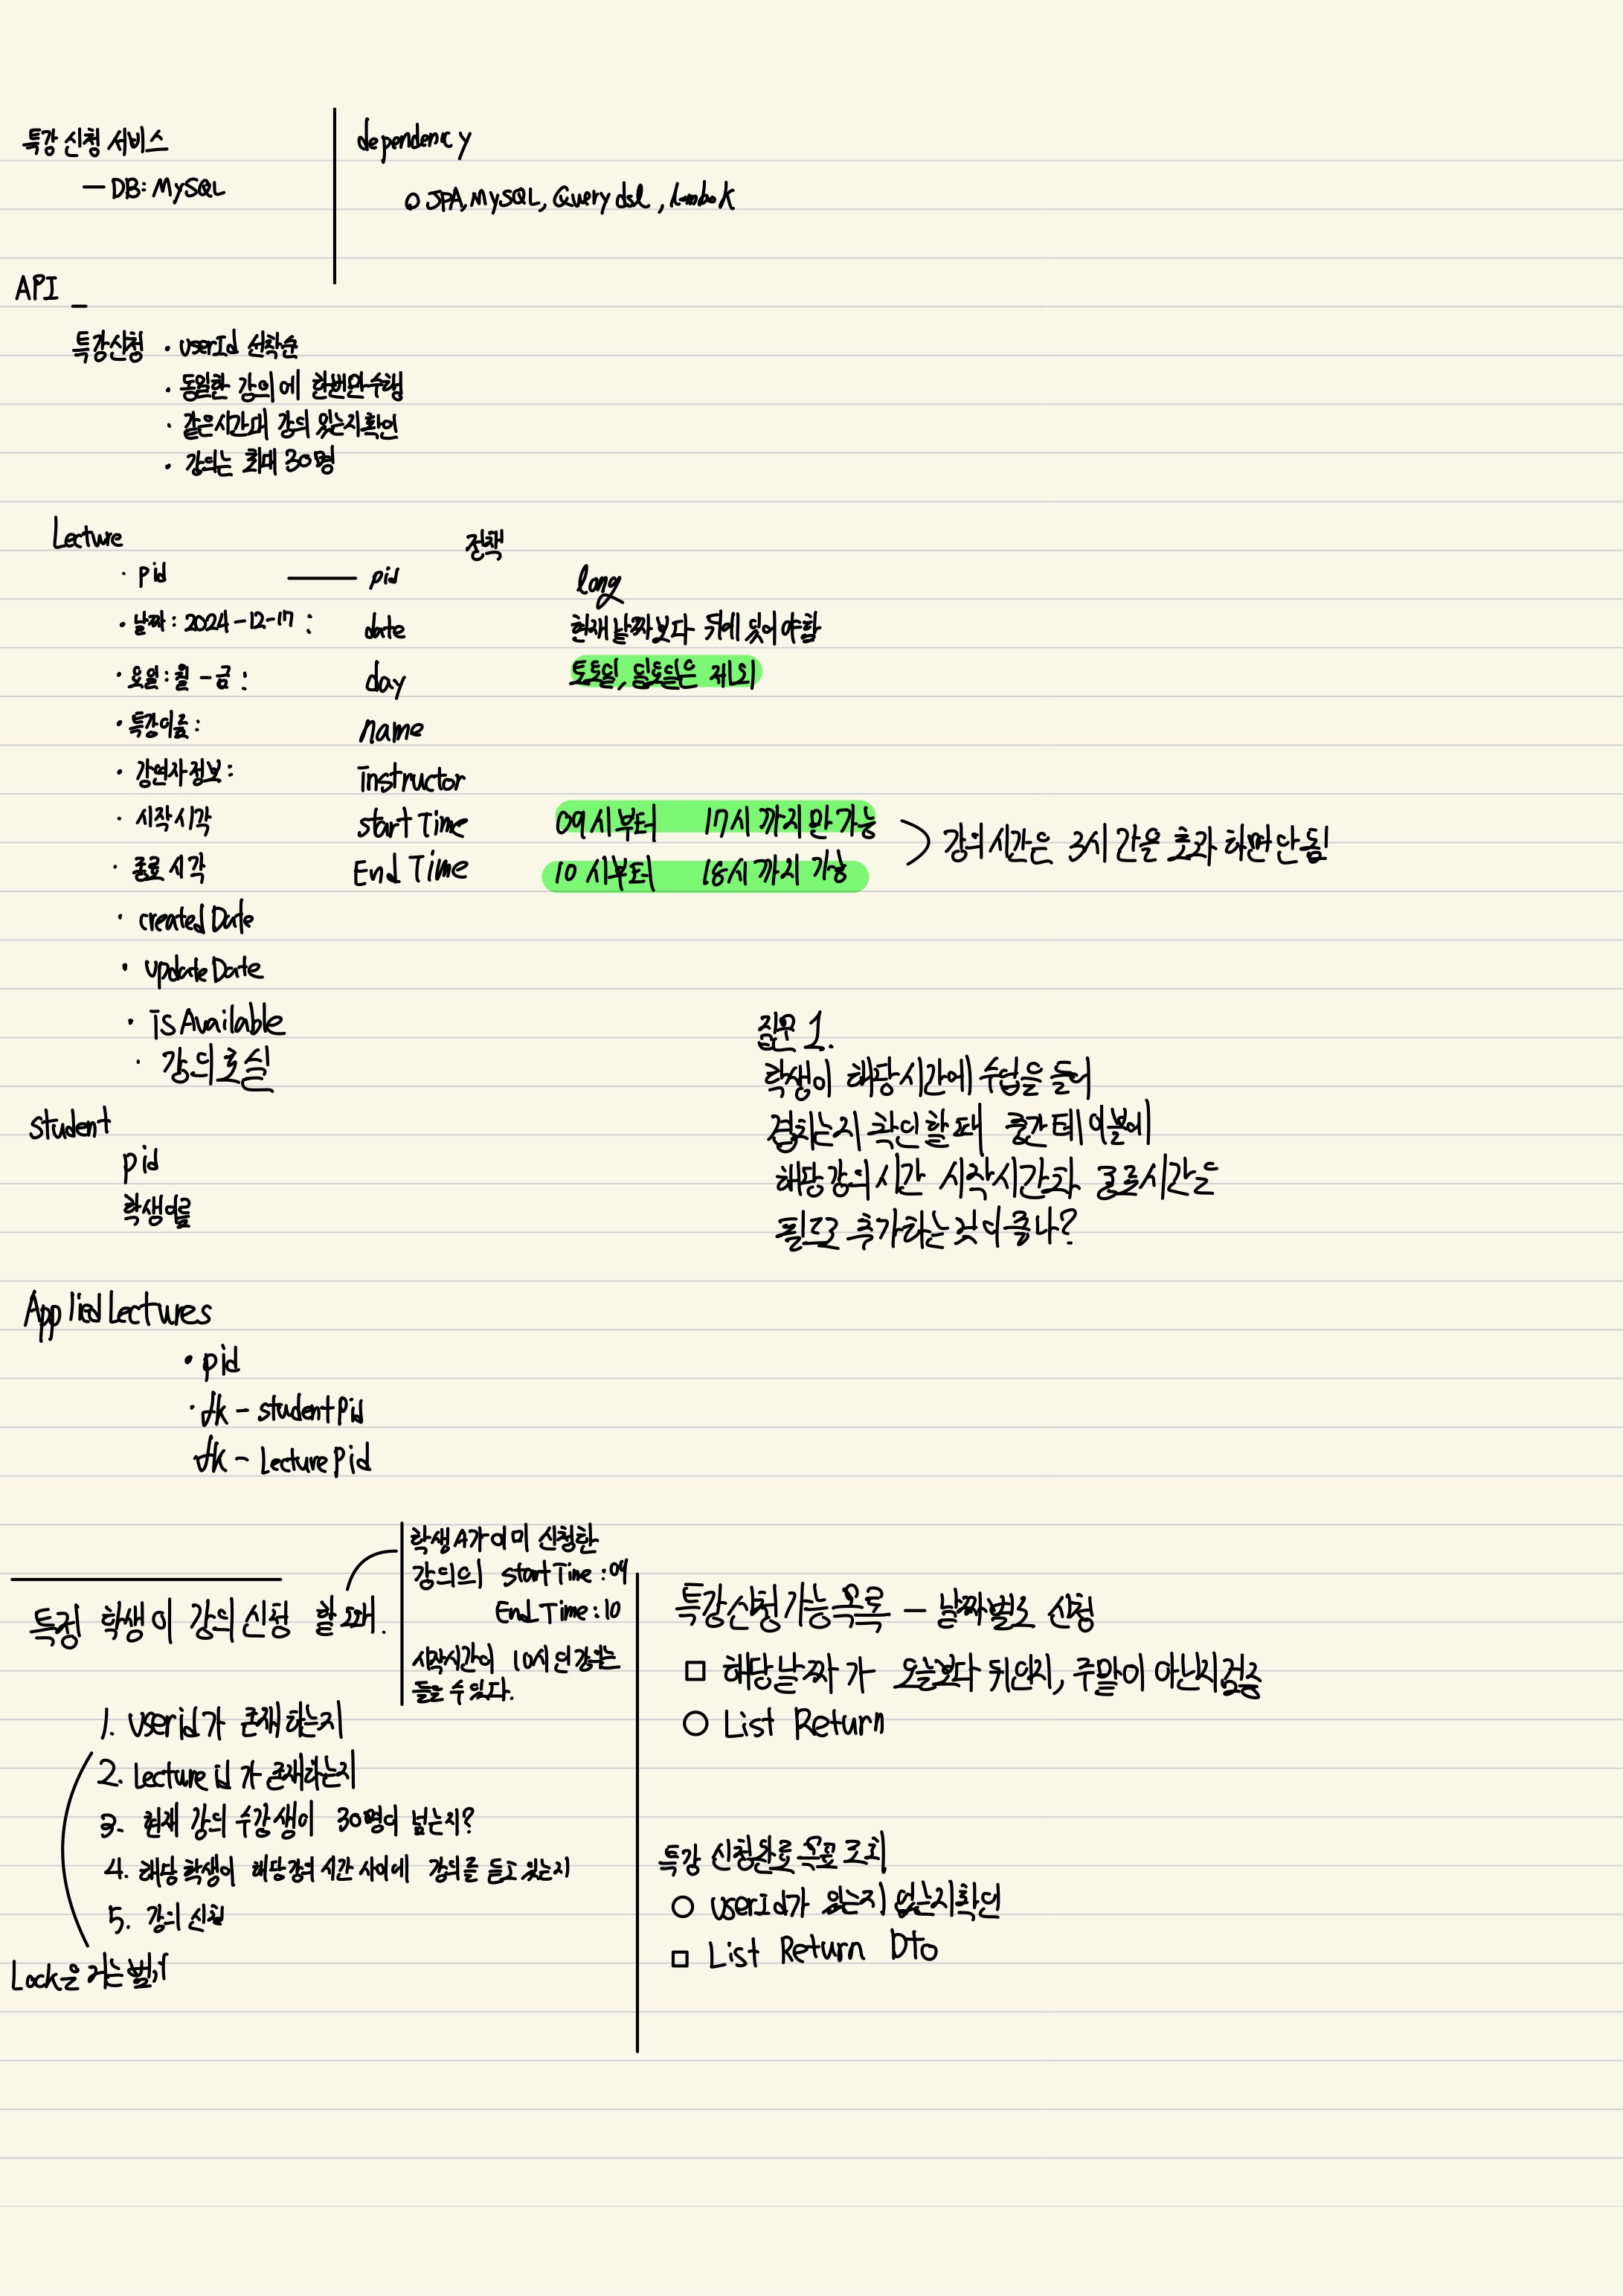 특강 신청 서비스
— DB: MySQL
dependency
○ JPA, MySQL, Query dsl, lombok
API _
특강신청 · userId 선착순
· 동일한 강의에 한번만 수행
· 같은시간대 강의 있는지 확인
· 강의는 최대 30명
Lecture
정책
· pid — pid long
· 날짜 : 2024-12-17 : date 현재 날짜보다 뒤에 있어야함
· 요일 : 월 - 금 : day 토요일, 일요일은 제외
· 특강이름 : name
· 강연자정보 : instructor
· 시작시각 start Time 09시부터 17시 까지만 가능
· 종료 시각 End Time 10시부터 18시까지 가능
강의시간은 3시간을 초과 하면 안됨
· created Date
· update Date
· is Available
· 강의로실
질문 1.
학생이 해당시간에 수업을 들어
겹치는지 확인할때 중간테이블에
해당강의시간 시작시간과 종료시간을
필드로 추가하는것이 좋나?
student
pid
학생이름
Applied Lectures
· pid
· fk - student pid
fk - Lecture pid
특정 학생이 강의신청 할때.
학생A가 이미 신청한
강의의 start Time : 09
End Time : 10
시작시간이 10시인 강의는
들을 수 있다.
1. user id가 존재하는지
2. Lecture id가 존재하는지
3. 현재 강의 수강생이 30명이 넘는지?
4. 해당 학생이 해당강의 시간 사이에 강의를 듣고 있는지
5. 강의 신청
Lock을 거는 범위
특강신청가능목록 — 날짜별로 신청
□ 해당날짜가 오늘보다 뒤인지, 주말이 아닌지검증
○ List Return
특강 신청완료 목록 조회
○ userId가 있는지 없는지확인
□ List Return Dto